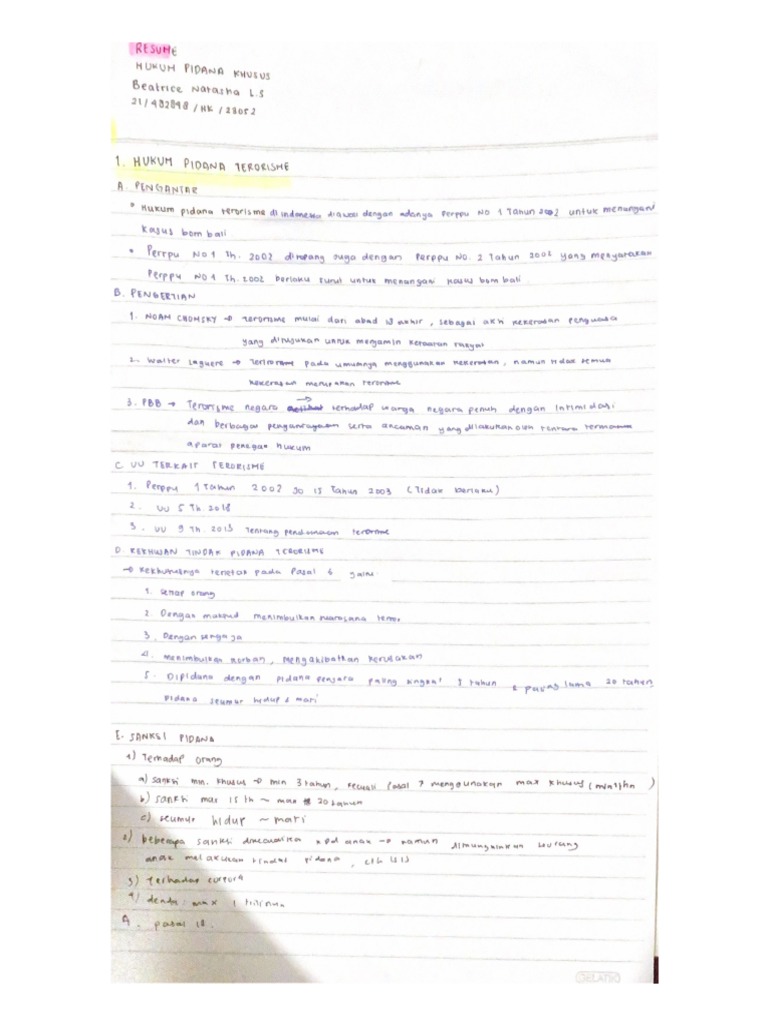 RESUME
HUKUM PIDANA KHUSUS
Beatrice Natasha L.S
21/482898/HK/23052
1. HUKUM PIDANA TERORISME
A. PENGANTAR
• Hukum pidana terorisme di Indonesia diawali dengan adanya Perppu NO 1 Tahun 2002 untuk menangani
kasus bom bali
• Perrpu NO 1 Th. 2002 ditopang juga dengan Perppu NO. 2 Tahun 2002 yang menyatakan
Perppu NO 1 Th. 2002 berlaku surut untuk menangani kasus bom bali
B. PENGERTIAN
1. NOAM CHOMSKY → Terorisme mulai dari abad 18 akhir, sebagai aksi kekerasan penguasa
yang ditujukan untuk menjamin ketaatan rakyat
2. Walter Laguere → Terrorisme pada umumnya menggunakan kekerasan, namun tidak semua
kekerasan merupakan terorisme
3. PBB → Terorisme negara terhadap warga negara penuh dengan intimidasi
dan berbagai penganiayaan serta ancaman yang dilakukan oleh tentara termasuk
aparat penegak hukum
C. UU TERKAIT TERORISME
1. Perppu 1 Tahun 2002 jo 15 Tahun 2003 (Tidak berlaku)
2. UU 5 Th. 2018
3. UU 9 Th. 2013 Tentang pendanaan terorisme
D. KEKHUSAN TINDAK PIDANA TERORISME
→ Kekhususnya terletak pada Pasal 6 yaitu
1. Setiap orang
2. Dengan maksud menimbulkan suasana teror
3. Dengan sengaja
4. Menimbulkan korban, mengakibatkan kerusakan
5. Dipidana dengan pidana penjara paling singkat 3 tahun & paling lama 20 tahun,
pidana seumur hidup & mati
E. SANKSI PIDANA
1) Terhadap orang
a) Sanksi min. khusus → min 3 tahun, kecuali Pasal 7 menggunakan max khusus (min 1 thn)
b) Sanksi max 15 th ~ max 20 tahun
c) seumur hidup ~ mati
2) beberapa sanksi dikecualikan pd anak → namun dimungkinkan seorang
anak melakukan tindak pidana, cth ISIS
3) Terhadap
4) denda max 1 triliun
pasal 18.